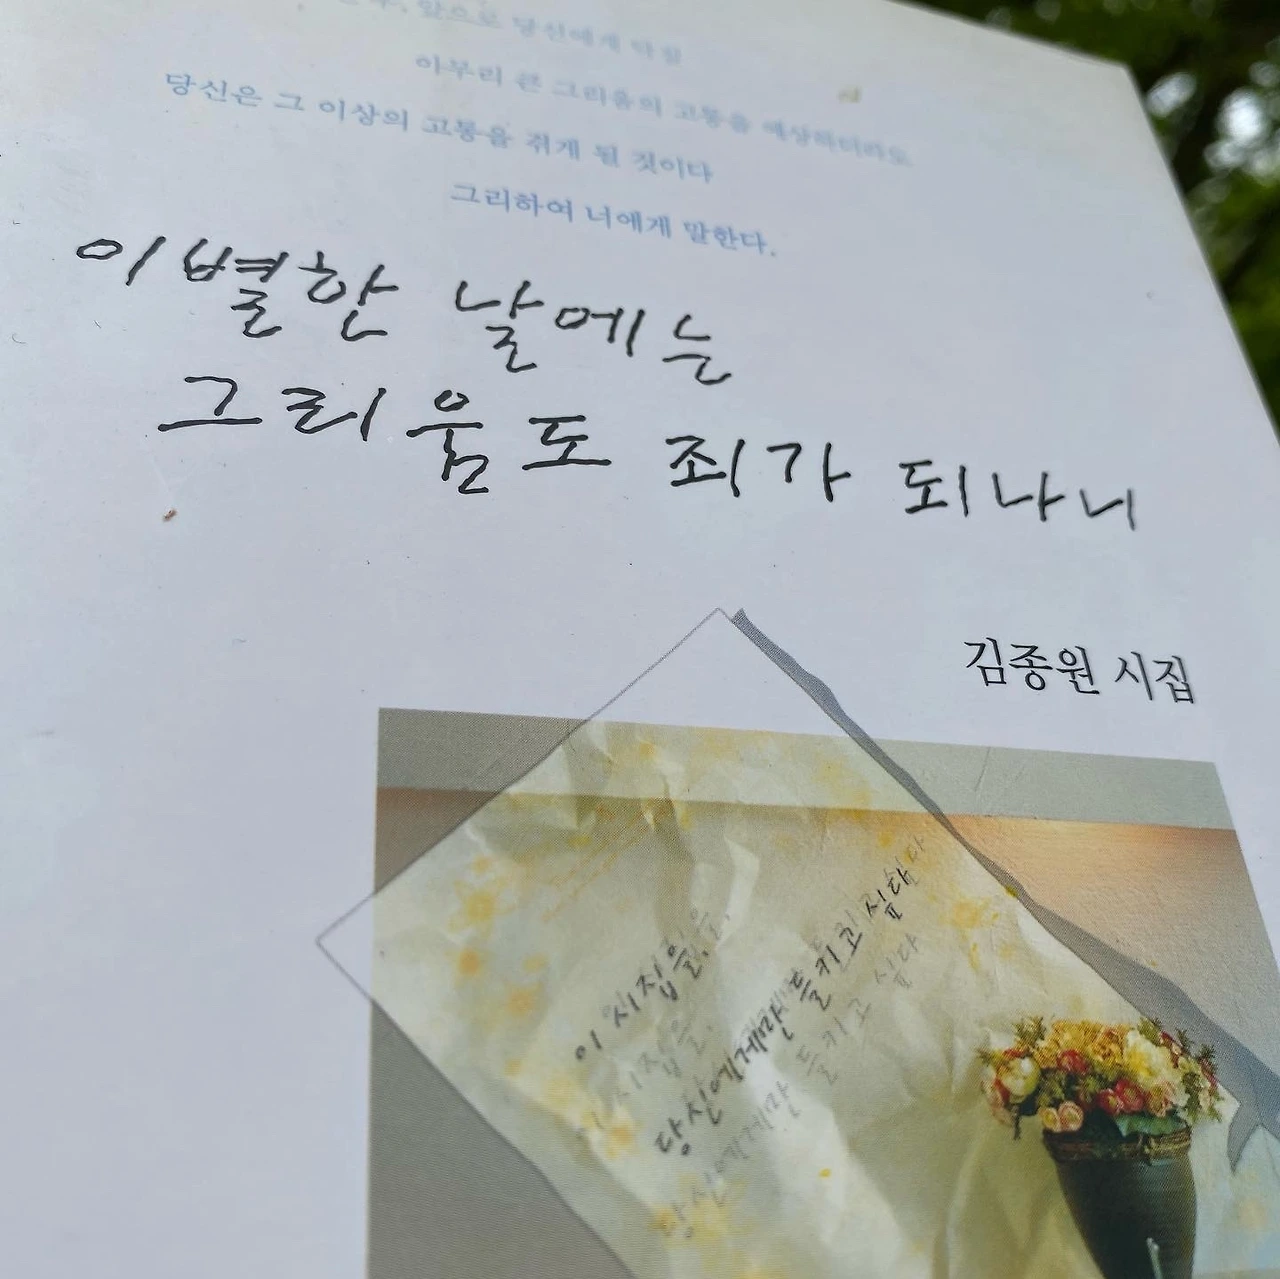 앞으로 당신에게 닥칠
아무리 큰 그리움의 고통을 예상하더라도
당신은 그 이상의 고통을 쥐게 될 것이다
그리하여 너에게 말한다.
이별한 날에는
그리움도 죄가 되나니
김종원 시집
이 시집을,
당신에게만 들키고 싶다
이 시집을,
당신에게만 들키고 싶다